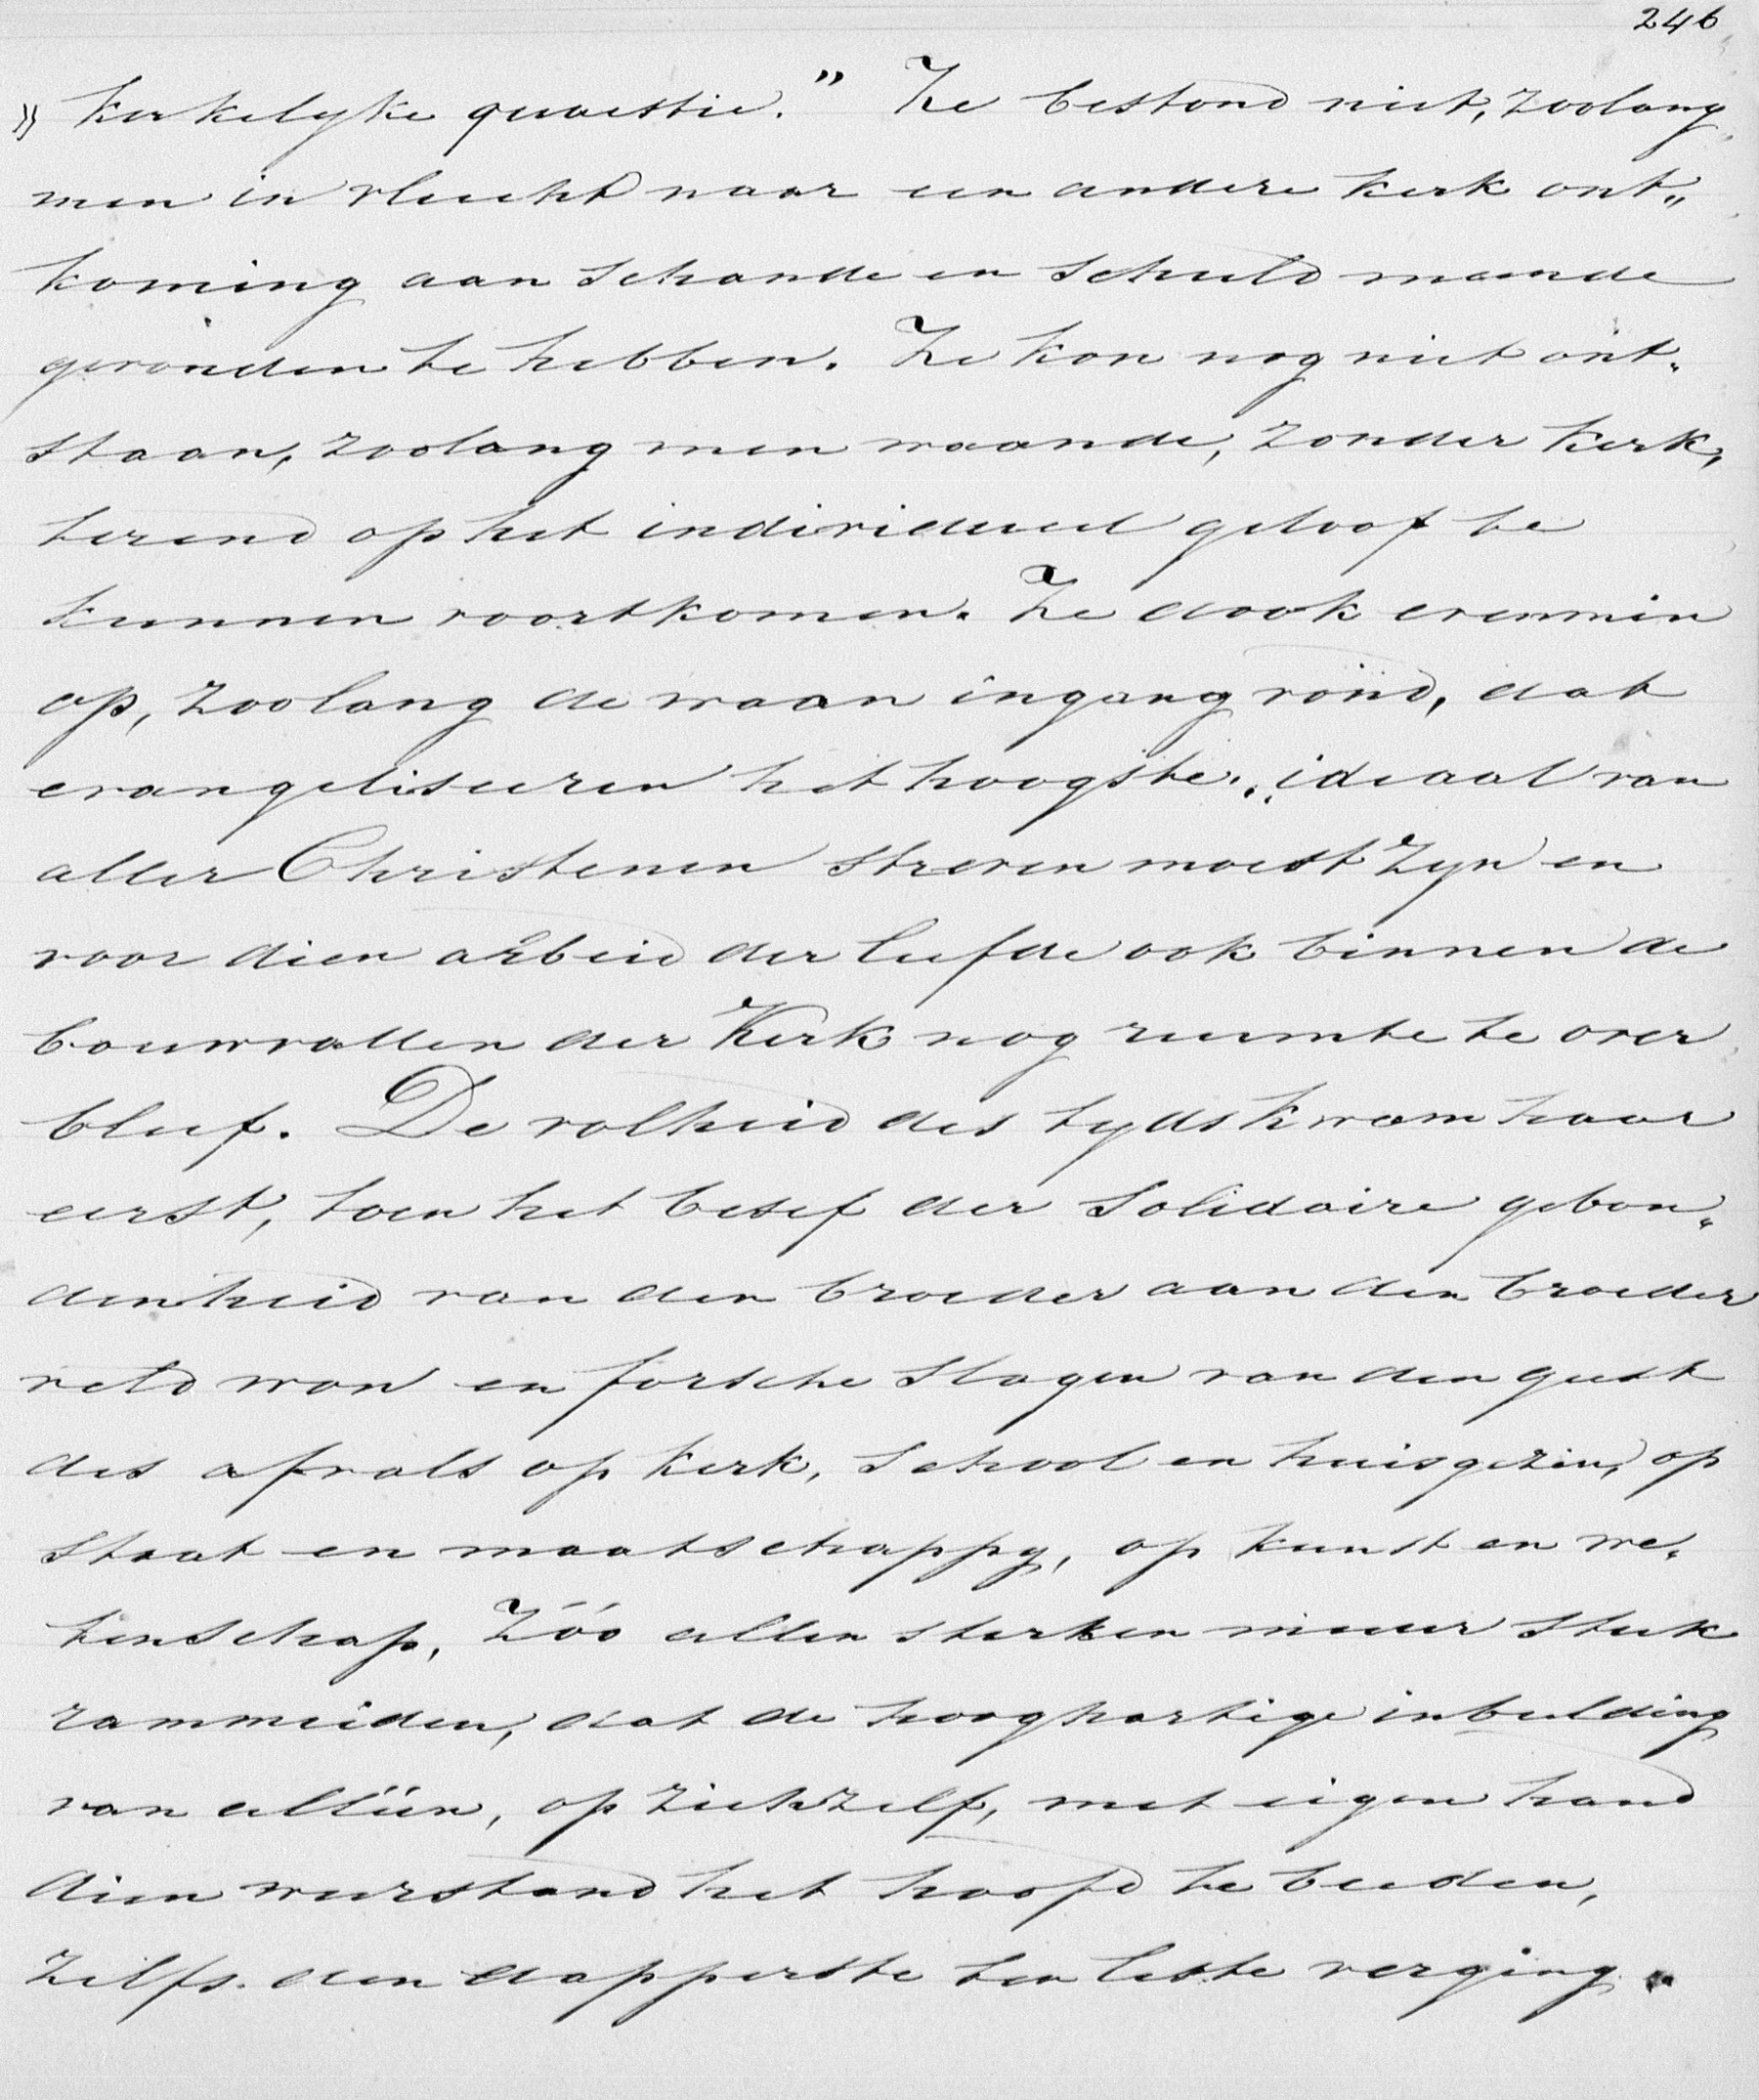 246
„ kerkelyke quaestie." Ze bestond niet, zoolang
men in vlucht naar een andere kerk ont„
koming aan schande en schuld meende
gevonden te hebben. Ze kon nog niet ont„
staan, zoolang men waande, zonder kerk,
terend op het individueel geloof te
kunnen voortkomen. Ze dook evenmin
op, zoolang de waan ingang vond, dat
evangeliseeren het hoogste ideaal van
aller Christenen streven moest zyn en
voor dien arbeid der liefde ook binnen de
bouwvallen der Kerk nog ruimte te over
bleef. De volheid des tyds kwam haar
eerst, toen het besef der solidaire gebon„
denheid van den broeder aan den broeder
veld won en forsche slagen van den geest
des afvals op kerk, school en huisgezin, op
staat en maatschappy, op kunst en we„
tenschap, zóó allen sterken muur stuk
rammeiden, dat de hooghartige inbeelding
van alléén, op zichzelf, met eigen hand
dien weerstand het hoofd te bieden,
zelfs den dapperste ten leste verging.